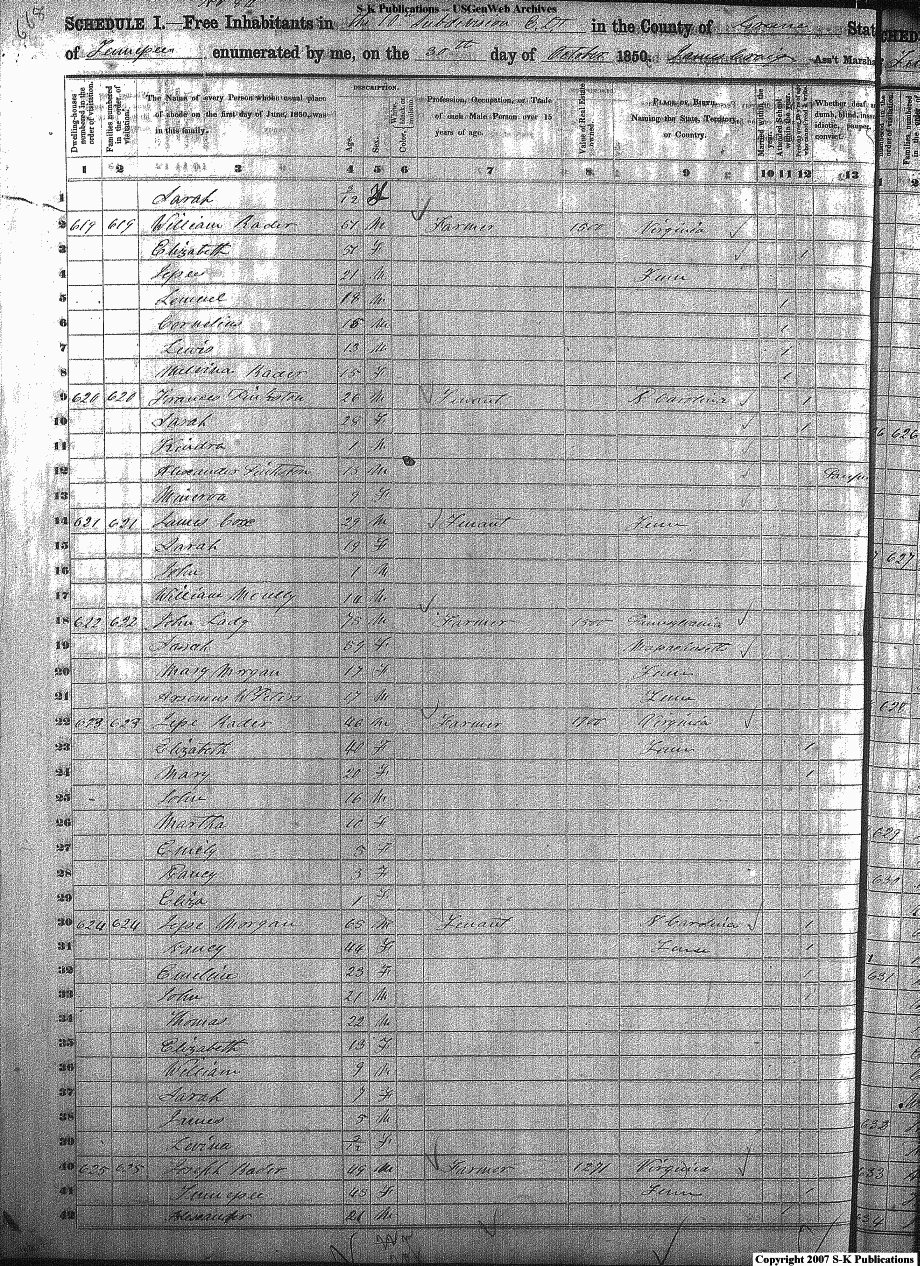 S-K Publications – USGenWeb Archives
SCHEDULE I.—Free Inhabitants in Subdivision in the County of State
of Tennessee enumerated by me, on the 30th day of October 1850. Ass't Marsh
Dwelling-houses numbered in the order of visitation.
Families numbered in the order of visitation.
The Name of every Person whose usual place of abode on the first day of June, 1850, was in this family.
DESCRIPTION.
Age.
Sex.
Color,
Profession, Occupation, or Trade of each Male Person over 15 years of age.
Value of Real Estate owned.
PLACE OF BIRTH, Naming the State, Territory, or Country.
Married within the year.
Attended School within the year.
Whether deaf and dumb, blind, insane, idiotic, pauper, or convict.
1 2 3 4 5 6 7 8 9 10 11 12 13
1 Sarah 2/12 F
2 619 619 William Rader 51 M Farmer 1500 Virginia
3 Elizabeth F 1
4 Jesse 21 M Tenn
5 Lemuel 18 M 1
6 Cornelius 15 M 1
7 Lewis 13 M 1
8 Melvina Rader 15 F 1
9 620 620 Frances 26 M Tenant N Carolina 1
10 Sarah 28 F 1
11 1 M
12 Alexander 13 M Pauper
13 Minerva 9 F
14 621 621 James Coxe 29 M Tenant Tenn
15 Sarah 19 F
16 John 1 M
17 William M
18 622 622 John Lady 75 M Farmer 1500 Pennsylvania
19 Sarah 59 F Massachusetts
20 Mary Morgan 17 F Tenn
21 17 M Tenn
22 623 623 Jesse Rader 46 M Farmer 1700 Virginia
23 Elizabeth 40 F Tenn 1
24 Mary 20 F 1
25 John 16 M
26 Martha 10 F
27 Emily 5 F
28 Nancy 3 F
29 Eliza 1 F
30 624 624 Jesse Morgan 65 M Tenant N Carolina 1
31 Nancy 44 F Tenn 1
32 Emeline 23 F 1
33 John 21 M 1
34 Thomas 22 M
35 Elizabeth 13 F
36 William 9 M
37 Sarah 7 F
38 James 5 M
39 Levina 2/12 F
40 625 625 Joseph Rader 49 M Farmer 1271 Virginia
41 Tennessee 45 F Tenn 1
42 Alexander 21 M
Copyright 2007 S-K Publications